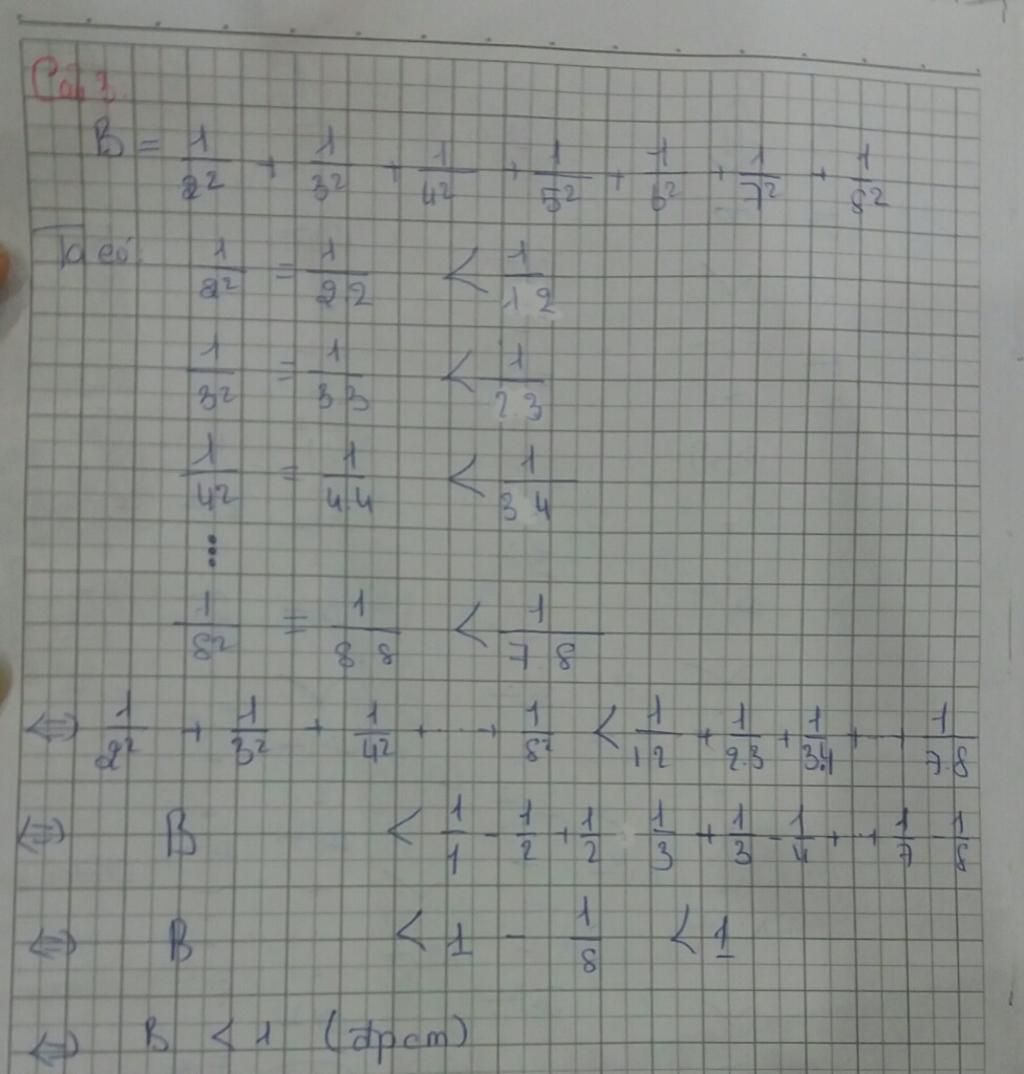 Câu 3.
B = 1/2² + 1/3² + 1/4² + 1/5² + 1/6² + 1/7² + 1/8²
Ta có 1/2² = 1/2.2 < 1/1.2
1/3² = 1/3.3 < 1/2.3
1/4² = 1/4.4 < 1/3.4
⋮
1/8² = 1/8.8 < 1/7.8
⇔ 1/2² + 1/3² + 1/4² + ... + 1/8² < 1/1.2 + 1/2.3 + 1/3.4 + ... 1/7.8
⇔ B < 1/1 - 1/2 + 1/2 1/3 + 1/3 - 1/4 + ... + 1/7 - 1/8
⇔ B < 1 - 1/8 < 1
⇔ B < 1 (đpcm)